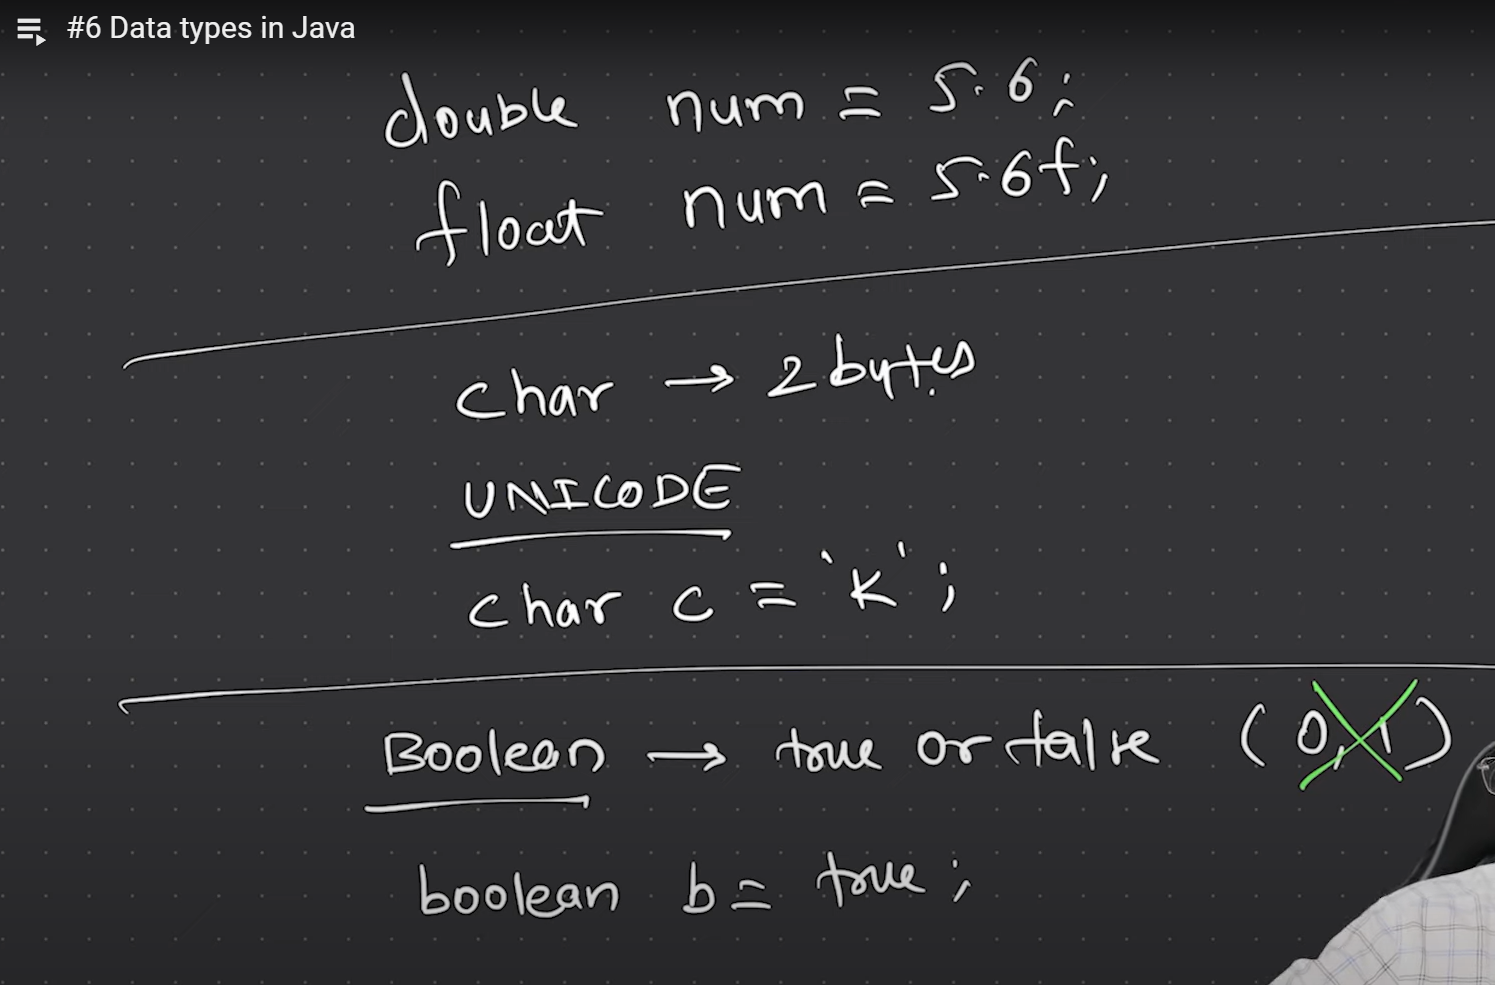 #6 Data types in Java
double num = 5.6;
float num = 5.6f;
char → 2 bytes
UNICODE
char c = 'k';
Boolean → true or false (0,1)
boolean b = true;